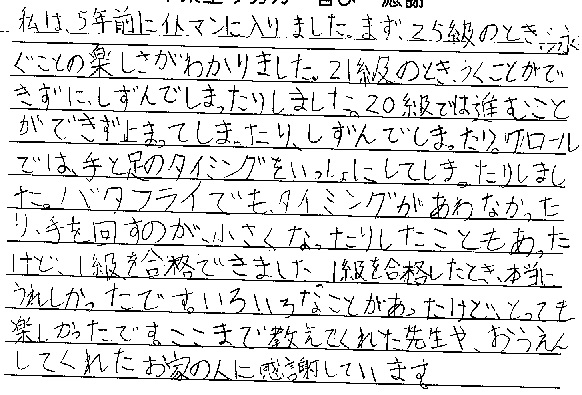 私は、5年前にイトマンに入りました。まず、25級のとき、泳
ぐことの楽しさがわかりました。21級のとき、うくことがで
きずに、しずんでしまったりしました。20級では進むこと
ができず止まってしまったり、しずんでしまったり。クロール
では、手と足のタイミングをいっしょにしてしまったりしまし
た。バタフライでも、タイミングがあわなかった
り、手を回すのが、小さくなったりしたこともあった
けど、1級を合格できました 1級を合格したとき、本当に
うれしかったです。いろいろなことがあったけど、とっても
楽しかったです。ここまで教えてくれた先生や、おうえん
してくれたお家の人に感謝しています